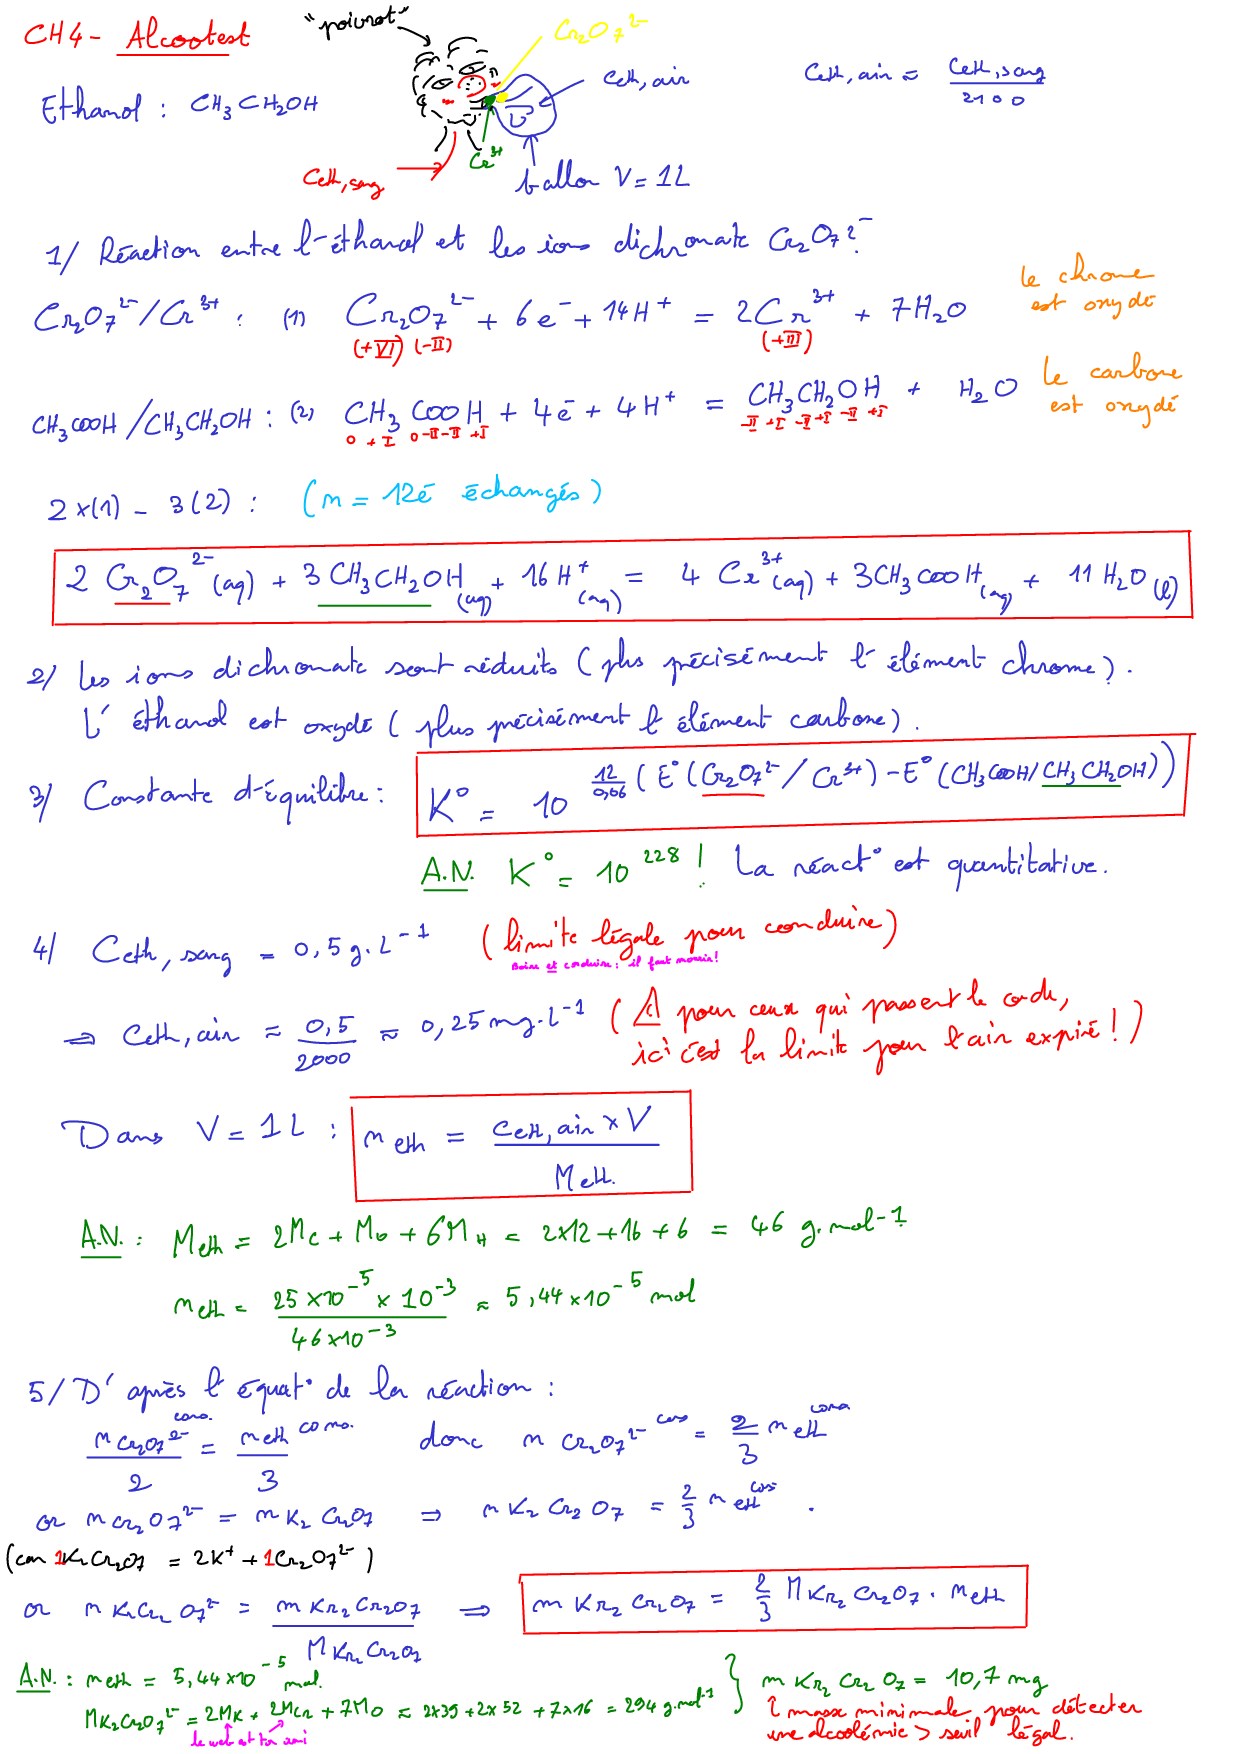 CH4 - Alcootest
"poivrot"
Cr₂O₇²⁻
Ceth, air
Ceth, air = Ceth, sang / 2100
Ethanol : CH₃CH₂OH
Cr³⁺
Ceth, sang
ballon V = 1L
1/ Réaction entre l'éthanol et les ions dichromate Cr₂O₇²⁻
le chrome est oxydé
Cr₂O₇²⁻/Cr³⁺ : (1) Cr₂O₇²⁻ + 6e⁻ + 14H⁺ = 2Cr³⁺ + 7H₂O
(+VI) (-II) (+III)
le carbone est oxydé
CH₃COOH/CH₃CH₂OH : (2) CH₃COOH + 4e⁻ + 4H⁺ = CH₃CH₂OH + H₂O
0 +I 0 -II -II +I -II +I -II +I -II +I
2x(1) - 3(2) : (n = 12e⁻ échangés)
2 Cr₂O₇²⁻(aq) + 3 CH₃CH₂OH(aq) + 16 H⁺(aq) = 4 Cr³⁺(aq) + 3CH₃COOH(aq) + 11 H₂O(l)
2/ Les ions dichromate sont réduits (plus précisément l'élément chrome).
L'éthanol est oxydé (plus précisément l'élément carbone).
3/ Constante d'équilibre : K° = 10^(12/0,06 (E°(Cr₂O₇²⁻/Cr³⁺) - E°(CH₃COOH/CH₃CH₂OH)))
A.N. K° = 10²²⁸ ! La réact° est quantitative.
4/ Ceth, sang = 0,5 g.L⁻¹ (limite légale pour conduire)
Boire et conduire : il faut mourir !
⇒ Ceth, air ≈ 0,5 / 2000 ≈ 0,25 mg.L⁻¹ (⚠ pour ceux qui passent le code,
ici c'est la limite pour l'air expiré !)
Dans V = 1L : neth = Ceth, air x V / Meth.
A.N. : Meth = 2Mc + Mo + 6MH = 2x12 + 16 + 6 = 46 g.mol⁻¹.
neth = 25 x10⁻⁵ x 10⁻³ / 46x10⁻³ ≈ 5,44x10⁻⁵ mol
5/ D'après l'équat° de la réaction :
nCr₂O₇²⁻ cons. / 2 = neth cons. / 3 donc nCr₂O₇²⁻ cons = 2/3 neth cons
or nCr₂O₇²⁻ = nK₂Cr₂O₇ ⇒ nK₂Cr₂O₇ = 2/3 neth cons.
(car 1K₂Cr₂O₇ = 2K⁺ + 1Cr₂O₇²⁻)
or nK₂Cr₂O₇²⁻ = mKr₂Cr₂O₇ / MKr₂Cr₂O₇ ⇒ mKr₂Cr₂O₇ = 2/3 MKr₂Cr₂O₇ . neth
A.N. : neth = 5,44x10⁻⁵ mol. } mKr₂Cr₂O₇ = 10,7 mg
MK₂Cr₂O₇²⁻ = 2MK + 2MCr + 7MO ≈ 2x39 + 2x52 + 7x16 = 294 g.mol⁻¹
le web est ton ami
↑ masse minimale pour détecter
une alcoolémie > seuil légal.